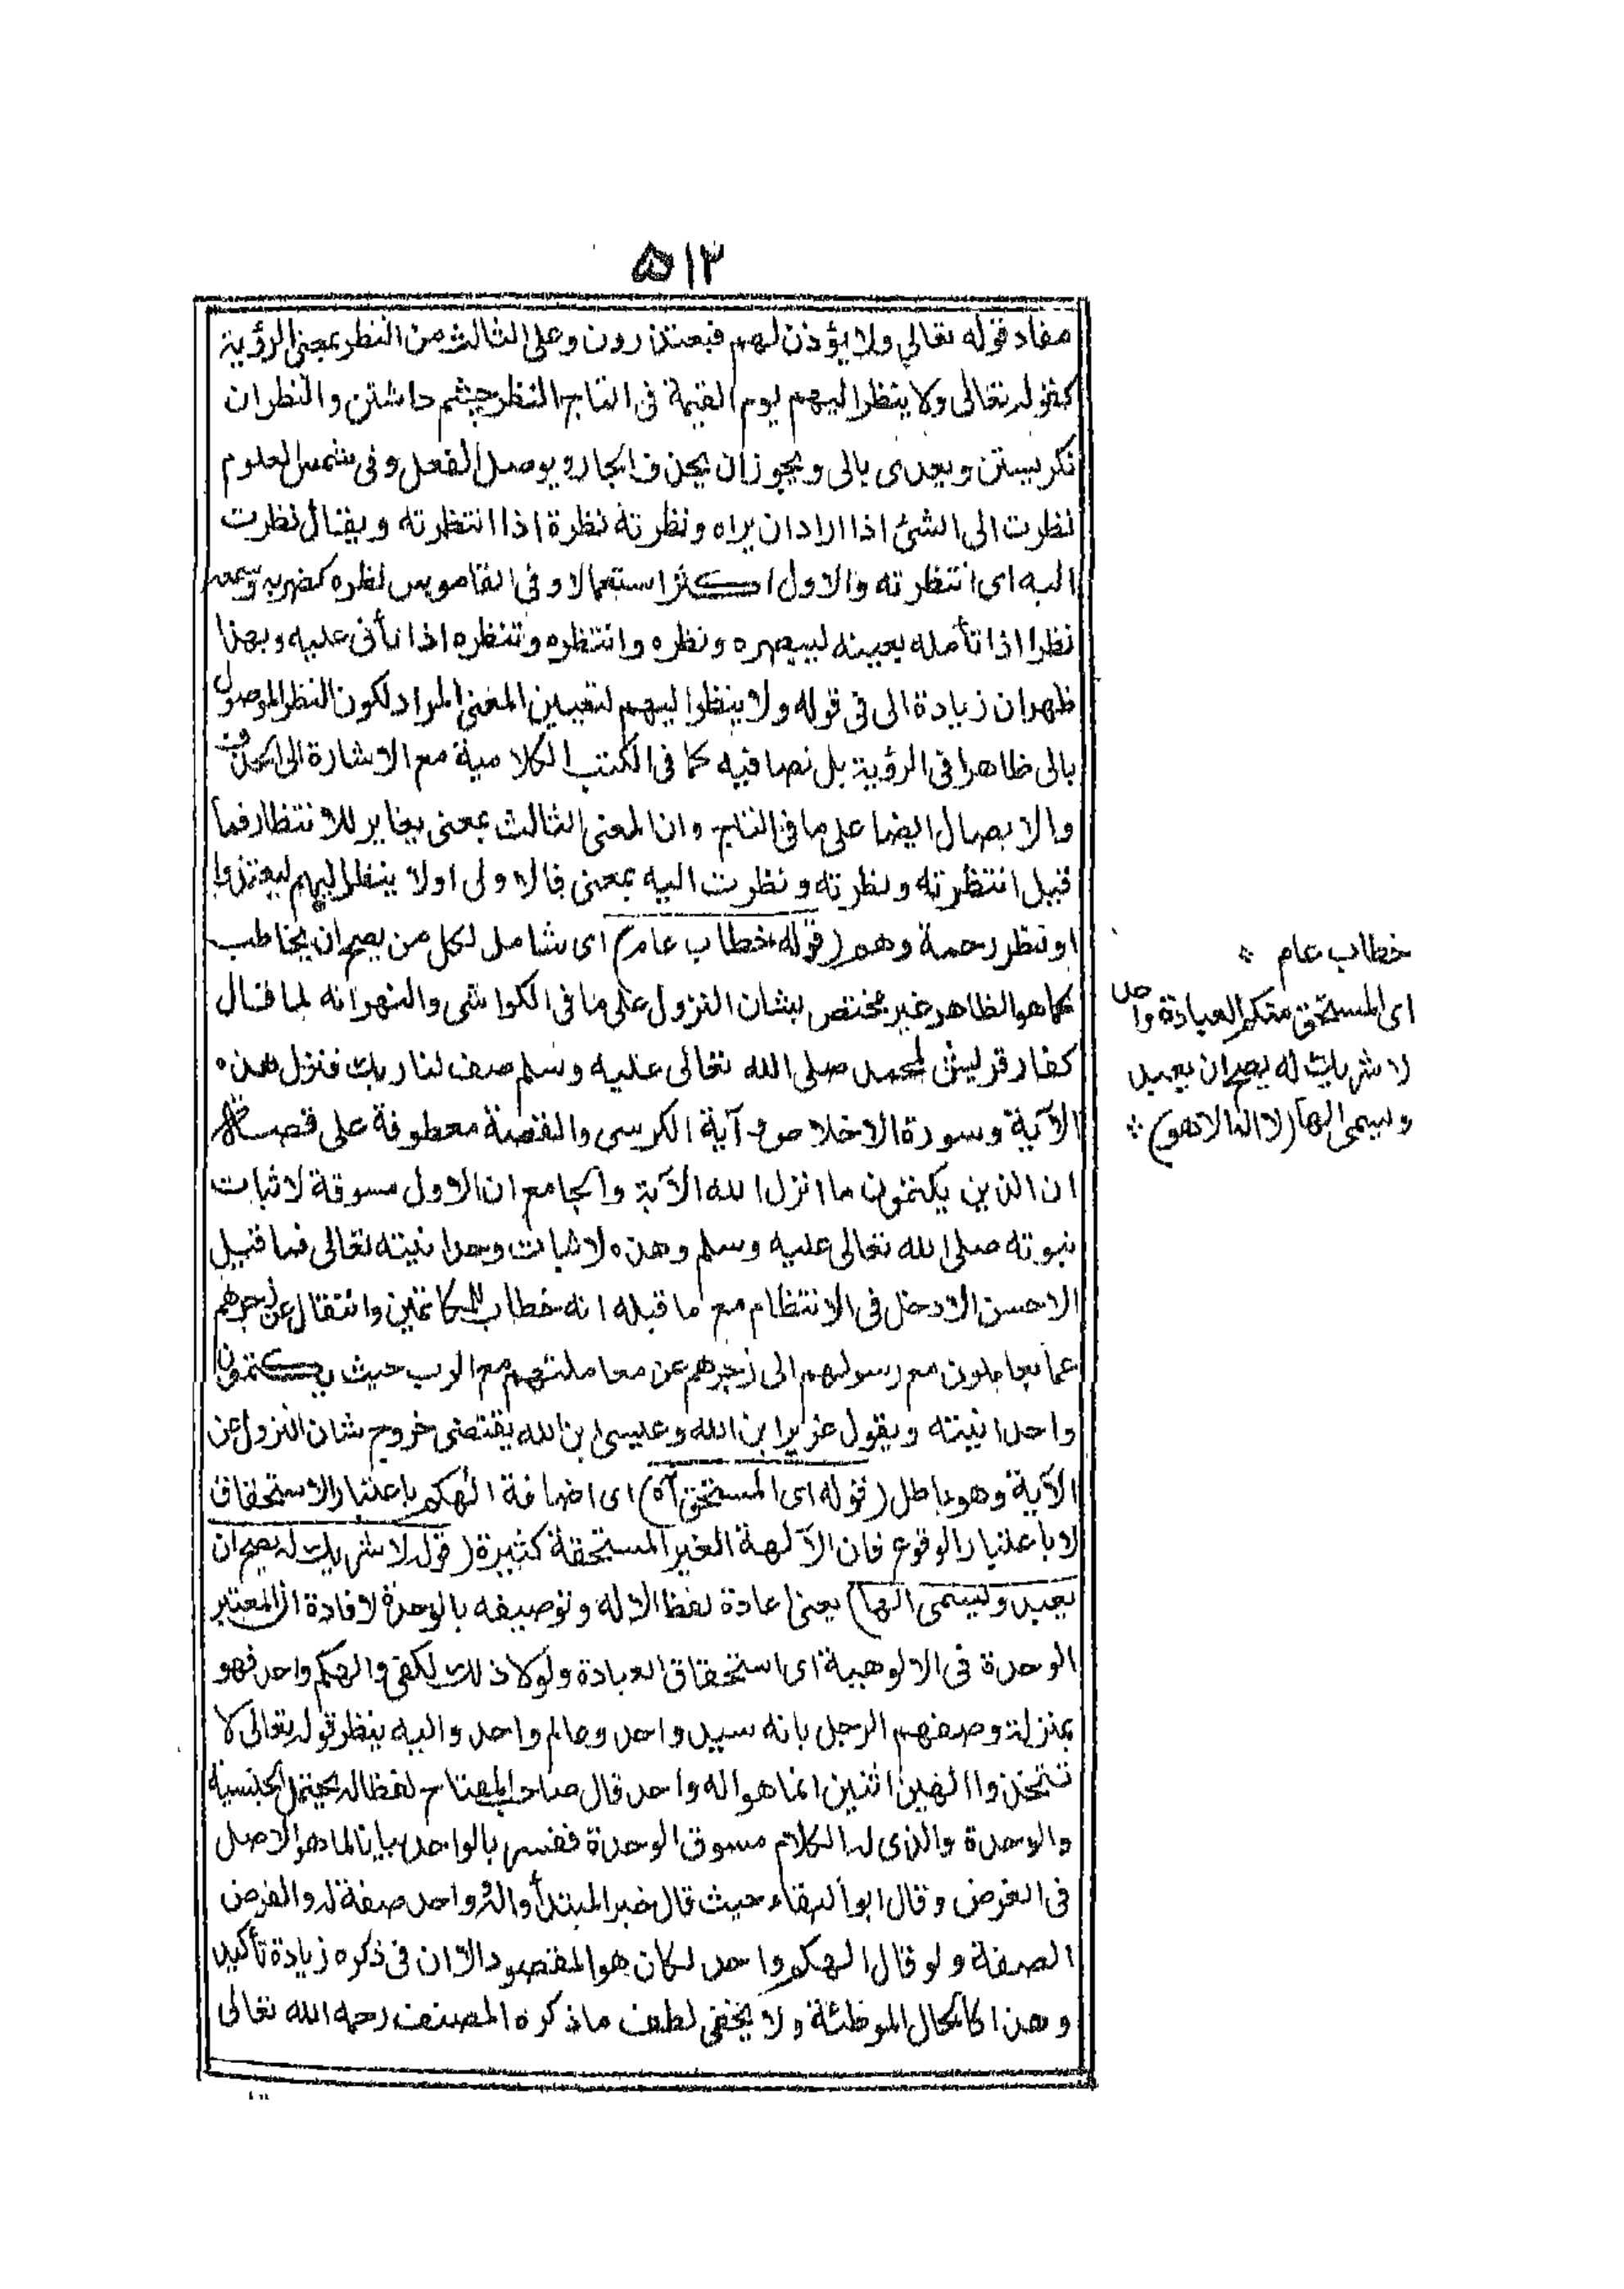 ۵۱۳
مفاد قوله تعالى ولا يؤذن لهم فيعتذرون وعلى الثالث من النظر بمعنى الرؤية
كقوله تعالى ولا ينظر اليهم يوم القيمة فى التاج النظر چشم داشتن والنظران
نكريستن ويعدى بالى ويجوز ان يحذف الجار ويوصل الفعل وفى شمس العلوم
نظرت الى الشئ اذا اراد ان يراه ونظرته نظرة اذا انتظرته ويقال نظرت
اليه اى انتظرته والاول اكثر استعمالا وفى القاموس نظره كضربه وسمعه
نظرا اذا تأمله بعينه ليبصره ونظره وانتظره وتنظره اذا تأنى عليه وبهذا
ظهران زيادة الى فى قوله ولا ينظر اليهم لتعيين المعنى المراد لكون النظر الموصول
بالى ظاهرا فى الرؤية بل نصا فيه كما فى الكتب الكلامية مع الاشارة الى الحذف
والايصال ايضا على ما فى التاج وان المعنى الثالث بمعنى يغاير للانتظار فما
قيل انتظرته ونظرته ونظرت اليه بمعنى فالاولى اولا ينظر اليهم ليعتذروا
اونظر رحمة وهم (قوله خطاب عام) اى شامل لكل من يصح ان يخاطب
كما هو الظاهر غير مختص بشان النزول على ما فى الكواشى والنهرانه لما قال
كفار قريش لمحمد صلى الله تعالى عليه وسلم صف لنا ربك فنزل هذه
الآية وسورة الاخلاص وآية الكرسى والقصة معطوفة على قصة
ان الذين يكتمون ما انزل الله الآية والجامع ان الاول مسوقة لاثبات
نبوته صلى الله تعالى عليه وسلم وهذه لاثبات وحدانيته تعالى فما قيل
الاحسن الادخل فى الانتظام مع ما قبله انه خطاب للكاتمين وانتقال عن زجرهم
عما يعاملون مع رسولهم الى زجرهم عن معاملتهم مع الرب حيث يكتمون
واحدانيته ويقول عزير ابن الله وعيسى ابن الله يقتضى خروج شان النزول عن
الآية وهو باطل (قوله اى المستحق آه) اى اضافة الهكم باعتبار الاستحقاق
لا باعتبار الوقوع فان الآلهة الغير المستحقة كثيرة (قوله لا شريك له يصح ان
يعبد وليسمى الها) يعنى اعادة لفظ الاله وتوصيفه بالوحدة لافادة ان المعتبر
الوحدة فى الالوهية اى استحقاق العبادة ولولا ذلك لكفى والهكم واحد فهو
بمنزلة وصفهم الرجل بانه سيد واحد وعالم واحد واليه ينظر قوله تعالى لا
تتخذوا الهين اثنين انما هو اله واحد قال صاحب المفتاح لفظ اله يحتمل الجنسية
والوحدة والذى له الكلام مسوق الوحدة ففسر بالواحد بيانا لما هو الاصل
فى الغرض وقال ابو البقاء حيث قال خبر المبتدأ واله وواحد صفة له والغرض
الصفة ولو قال الهكم واحد لكان هو المقصود الا ان فى ذكره زيادة تأكيد
وهذا كالحال الموطئة ولا يخفى لطف ما ذكره المصنف رحمه الله تعالى
خطاب عام ؞
اى المستحق منكم العبادة واحد
لا شريك له يصح ان يعبد
وسيمى الها (لا اله الا هو) ؞